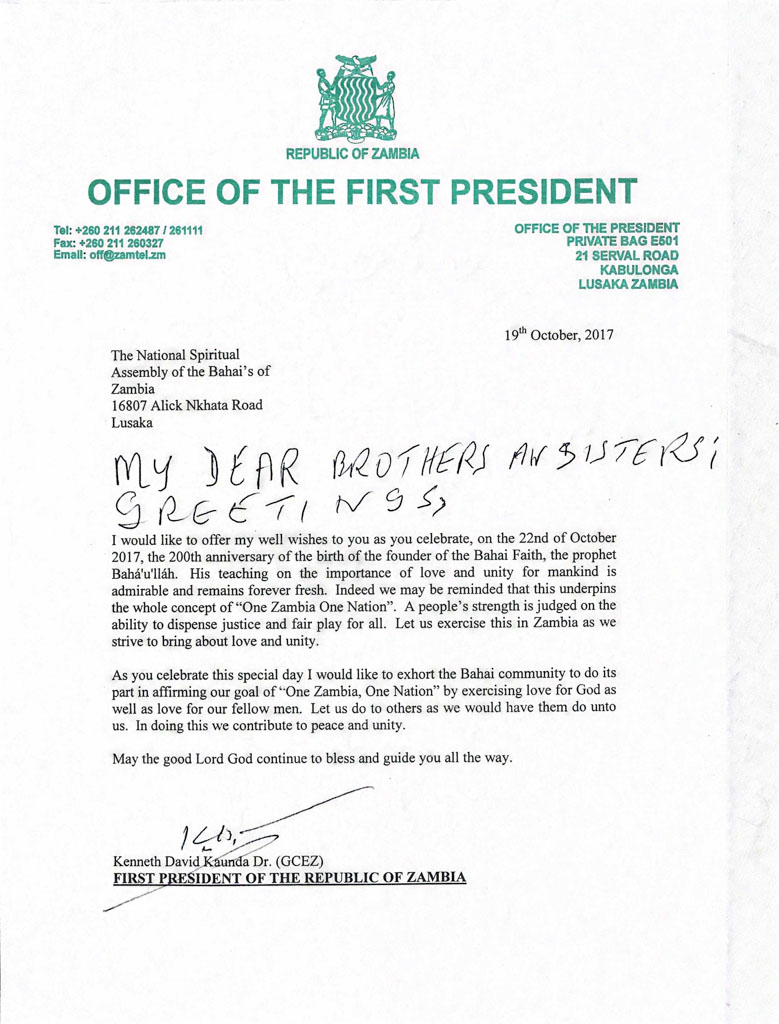 REPUBLIC OF ZAMBIA
OFFICE OF THE FIRST PRESIDENT
Tel: +260 211 262487 / 261111
Fax: +260 211 260327
Email: off@zamtel.zm
OFFICE OF THE PRESIDENT
PRIVATE BAG E501
21 SERVAL ROAD
KABULONGA
LUSAKA ZAMBIA
19th October, 2017
The National Spiritual
Assembly of the Bahai's of
Zambia
16807 Alick Nkhata Road
Lusaka
MY DEAR BROTHERS AN SISTERS;
GREETINGS,
I would like to offer my well wishes to you as you celebrate, on the 22nd of October
2017, the 200th anniversary of the birth of the founder of the Bahai Faith, the prophet
Bahá'u'lláh. His teaching on the importance of love and unity for mankind is
admirable and remains forever fresh. Indeed we may be reminded that this underpins
the whole concept of “One Zambia One Nation”. A people's strength is judged on the
ability to dispense justice and fair play for all. Let us exercise this in Zambia as we
strive to bring about love and unity.
As you celebrate this special day I would like to exhort the Bahai community to do its
part in affirming our goal of “One Zambia, One Nation” by exercising love for God as
well as love for our fellow men. Let us do to others as we would have them do unto
us. In doing this we contribute to peace and unity.
May the good Lord God continue to bless and guide you all the way.
Kenneth David Kaunda Dr. (GCEZ)
FIRST PRESIDENT OF THE REPUBLIC OF ZAMBIA